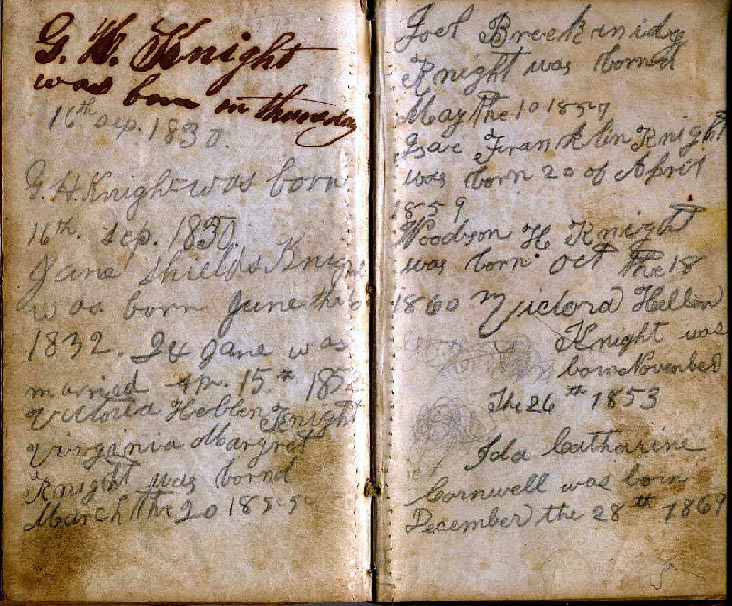 G. H. Knight
was born on thursday
16th sep. 1830
G. H Knight was born
16th. Sep. 1830.
Jane Shields Knight
was born June the 6
1832. I & Jane was
married 15th 185
Victoria Hellen Knight
Virginia Margret
Knight was bornd
March the 20 1855
Joel Breckinidg
Knight was bornd
May the 10 1857
Isac Franklin Knight
was born 20 of April
1859
Woodson H Knight
was born Oct the 18
1860 Victora Hellen
Knight was
born November
The 26th 1853
Ida Catharine
Cornwell was born
December the 28th 1869